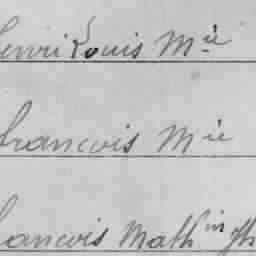 Henri Louis Mie
francois Mie
francois Mathin